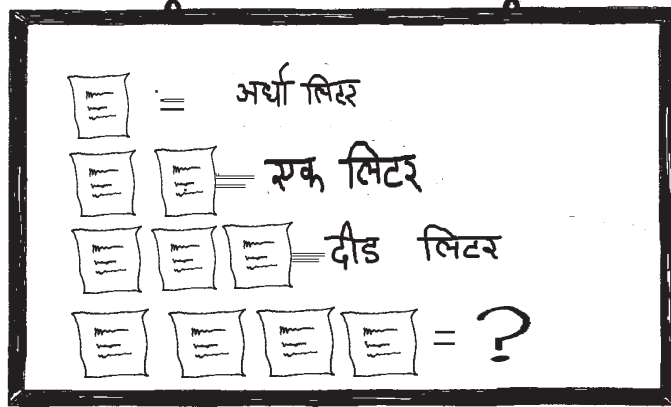 = अर्धा लिटर
= एक लिटर
= दीड लिटर
= ?